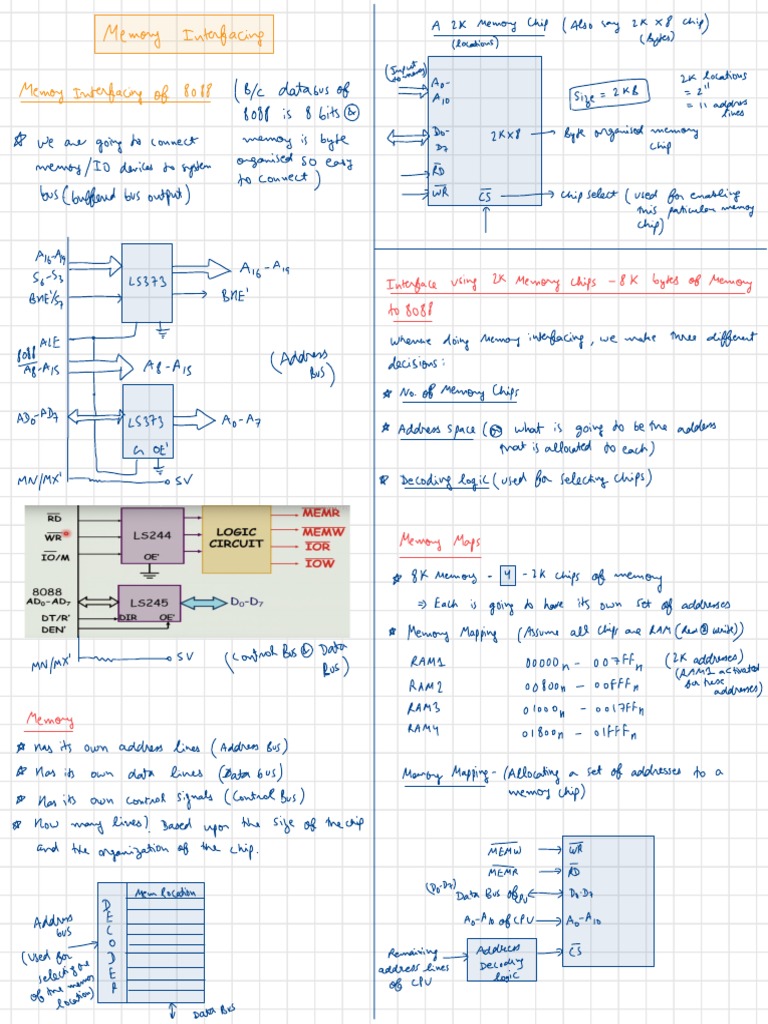 Memory Interfacing
Memory Interfacing of 8088
(B/c databus of
8088 is 8 bits &
memory is byte
organised so easy
to connect)
* we are going to connect
memory/IO devices to system
bus (buffered bus output)
A16-A19
S6-S3
BHE'/S7
LS373
A16-A19
BHE'
ALE
8088
A8-A15
A8-A15
(Address
Bus)
AD0-AD7
LS373
A0-A7
G OE'
MN/MX'
5V
RD
WR
IO/M
LS244
OE'
LOGIC
CIRCUIT
MEMR
MEMW
IOR
IOW
8088
AD0-AD7
LS245
D0-D7
DT/R'
DIR
OE'
DEN'
MN/MX'
5V
(Control Bus & Data
Bus)
Memory
* Has its own address lines (Address Bus)
* Has its own data lines (Data bus)
* Has its own control signals (Control Bus)
* How many lines? Based upon the size of the chip
and the organization of the chip.
Mem location
DECODER
Address
bus
(Used for
selecting one
of the memory
location)
Data Bus
A 2K Memory Chip (Also say 2K x 8 chip)
(locations)
(bytes)
(Input
to memory)
A0-
A10
D0-
D7
RD
WR
2K x 8
CS
Size = 2KB
2K locations
= 2^11
= 11 address
lines
Byte organised memory
chip
Chip select (used for enabling
this particular memory
chip)
Interface using 2K Memory Chips - 8K bytes of Memory
to 8088
Whenever doing memory interfacing, we make three different
decisions:
* No. of Memory Chips
* Address space (what is going to be the address
that is allocated to each)
* Decoding logic (used for selecting chips)
Memory Maps
* 8K Memory - 4 - 2K chips of memory
⇒ Each is going to have its own set of addresses
* Memory Mapping (Assume all chips are RAM (Read & Write))
RAM1 00000H - 007FFH
RAM2 00800H - 00FFFH
RAM3 01000H - 0017FFH
RAM4 01800H - 01FFFH
(2K addresses)
(RAM1 activated
for these
addresses)
Memory Mapping - (Allocating a set of addresses to a
memory chip)
MEMW
WR
MEMR
RD
(D0-D7)
Data Bus of CPU
D0-D7
A0-A10 of CPU
A0-A10
Remaining
address lines
of CPU
Address
Decoding
logic
CS